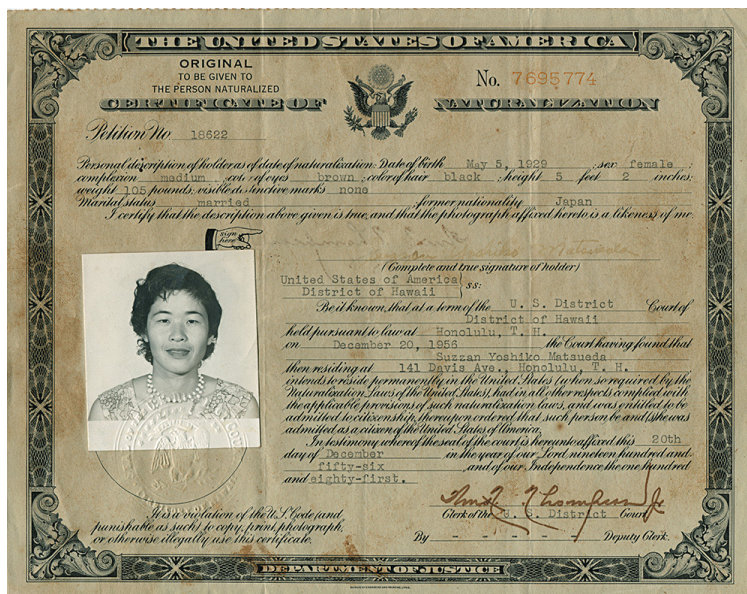 THE UNITED STATES OF AMERICA
ORIGINAL
TO BE GIVEN TO
THE PERSON NATURALIZED
No. 7695774
CERTIFICATE OF NATURALIZATION
Petition No 18622
Personal description of holder as of date of naturalization: Date of birth May 5, 1929 ; sex female ;
complexion medium color of eyes brown ; color of hair black ; height 5 feet 2 inches;
weight 105 pounds; visible distinctive marks none
Marital status married former nationality Japan
I certify that the description above given is true, and that the photograph affixed hereto is a likeness of me.
sign here
(Complete and true signature of holder)
United States of America
District of Hawaii } ss:
Be it known, that at a term of the U. S. District Court of
District of Hawaii
held pursuant to law at Honolulu, T. H.
on December 20, 1956 the Court having found that
Suzzan Yoshiko Matsueda
then residing at 141 Davis Ave., Honolulu, T. H.
intends to reside permanently in the United States (when so required by the
Naturalization Laws of the United States), had in all other respects complied with
the applicable provisions of such naturalization laws, and was entitled to be
admitted to citizenship, thereupon ordered that such person be and (s)he was
admitted as a citizen of the United States of America.
In testimony whereof the seal of the court is hereunto affixed this 20th
day of December in the year of our Lord nineteen hundred and
fifty-six and of our Independence the one hundred
and eighty-first.
It is a violation of the U.S. Code (and
punishable as such) to copy, print, photograph,
or otherwise illegally use this certificate.
Thompson Jr
Clerk of the U. S. District Court
By - - - - - Deputy Clerk.
DEPARTMENT OF JUSTICE